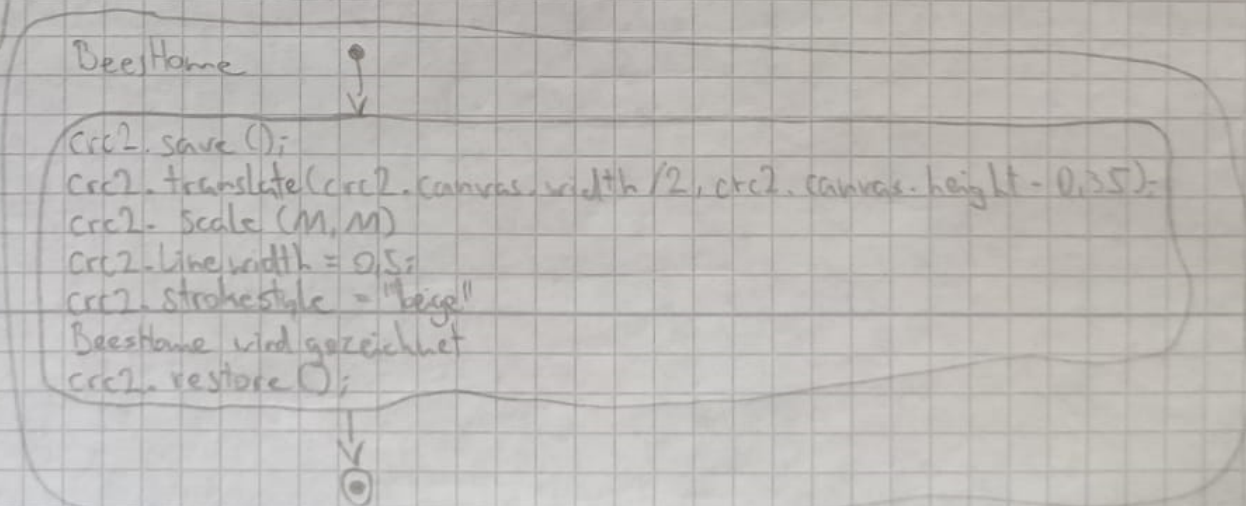 BeesHome
crc2. save ();
crc2. translate(crc2. canvas. width /2, crc2. canvas. height - 0,35);
crc2. scale (M, M)
crc2. Linewidth = 0,5;
crc2. strokestyle = "beige"
BeesHome wird gezeichnet
crc2. restore ();